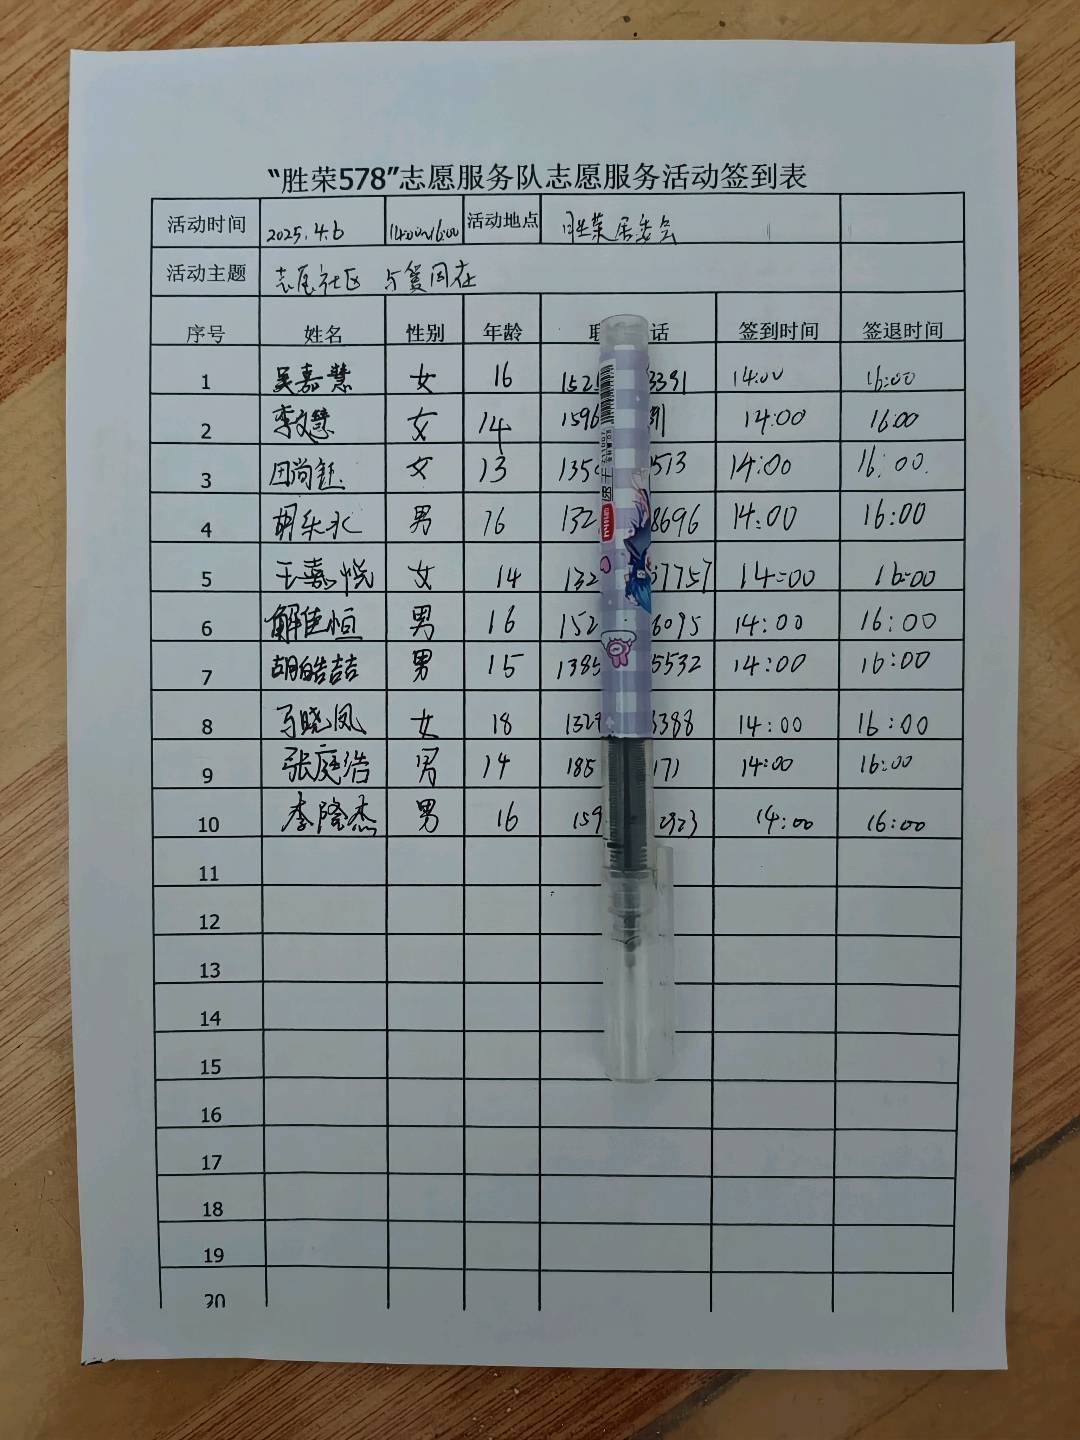 “胜荣578”志愿服务队志愿服务活动签到表
活动时间 2025.4.6 14:00~16:00 活动地点 胜荣居委会
活动主题 志愿社区 与爱同在
序号 姓名 性别 年龄 联 话 签到时间 签退时间
1 吴嘉慧 女 16 152 3391 14:00 16:00
2 李文慧 女 14 1596 91 14:00 16:00
3 田尚钰 女 13 135 513 14:00 16:00.
4 胡 永 男 16 132 8696 14:00 16:00
5 王嘉悦 女 14 132 7757 14=00 16=00
6 解佳恒 男 16 152 6095 14:00 16:00
7 胡皓喆 男 15 1385 5532 14:00 16:00
8 马晓凤 女 18 132 3388 14:00 16:00
9 张庭浩 男 14 185 171 14:00 16:00
10 李隆杰 男 16 159 2923 14:00 16:00
11
12
13
14
15
16
17
18
19
20